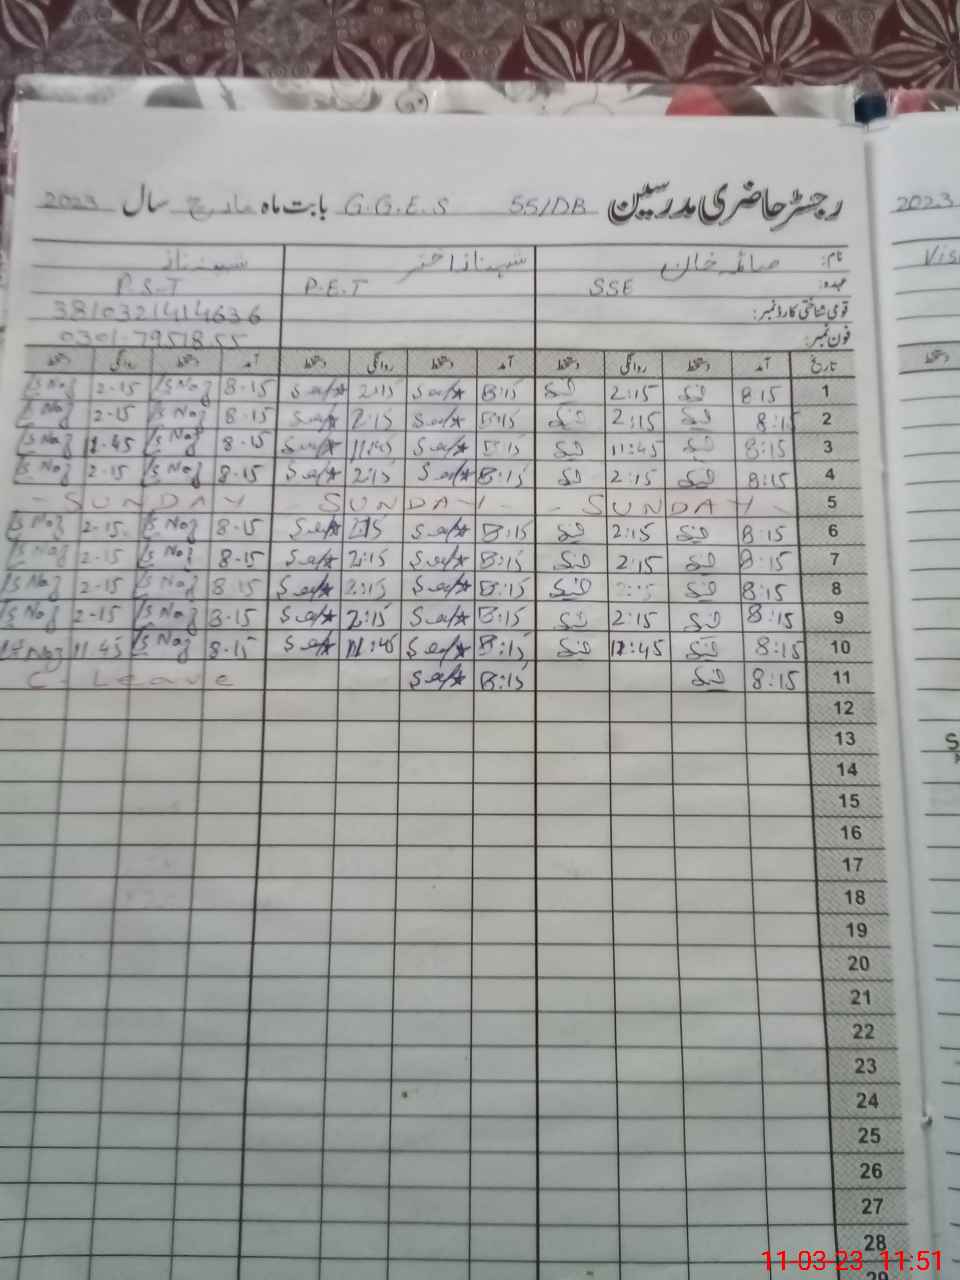 رجسٹر حاضری مدرسین G.G.E.S 55/DB بابت ماہ مارچ سال 2023
نام: صائمہ خان شہناز اختر شہناز
عہدہ: SSE P.E.T P.S.T
قومی شناختی کارڈ نمبر: 3810321414636
فون نمبر: 0301-7951855
تاریخ آمد دستخط روانگی دستخط آمد دستخط روانگی دستخط آمد دستخط روانگی دستخط
1 8:15 2:15 8:15 2:15 8-15 S Naz 2-15 S Naz
2 8:15 2:15 8:15 2:15 8-15 S Naz 2-15 S Naz
3 8:15 11:45 8:15 11:45 8-15 S Naz 11-45 S Naz
4 8:15 2:15 8:15 2:15 8-15 S Naz 2-15 S Naz
5 - SUNDAY - SUNDAY - - SUNDAY -
6 8:15 2:15 8:15 2:15 8-15 S Naz 2-15 S Naz
7 8:15 2:15 8:15 2:15 8-15 S Naz 2-15 S Naz
8 8:15 8:15 2:15 8-15 S Naz 2-15 S Naz
9 8:15 2:15 8:15 2:15 8-15 S Naz 2-15 S Naz
10 8:15 11:45 8:15 11:45 8-15 S Naz 11.45 S Naz
11 8:15 8:15 C- Leave
12
13
14
15
16
17
18
19
20
21
22
23
24
25
26
27
28
29
2023
Visi
دستخط
S
11-03-23 11:51